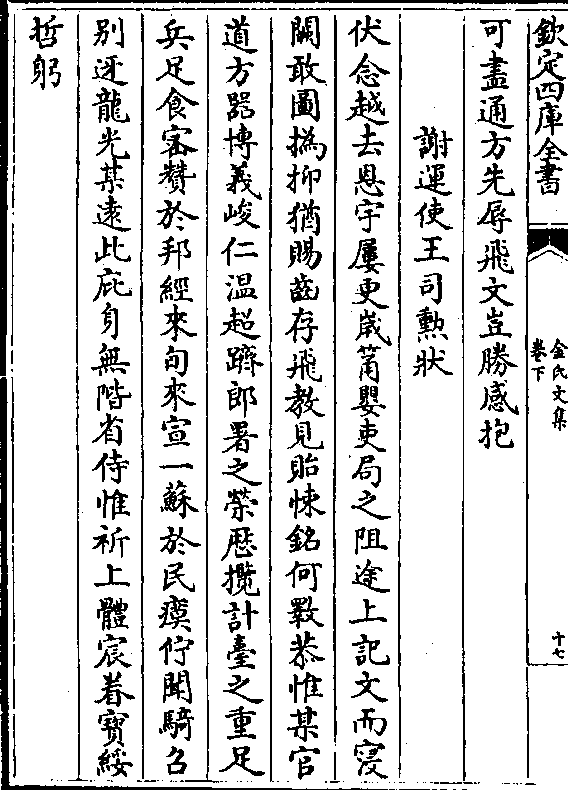 欽定四庫全書
金氏文集
卷下
十七
可盡通方先辱飛文豈勝感抱
謝運使王司勲狀
伏念越去恩宇屢更嵗籥嬰吏局之阻途上記文而寖
闕敢圖撝抑猶賜齒存飛教見貽悚銘何斁恭惟某官
道方器博義峻仁温超躋郎署之榮厯攬計臺之重足
兵足食審賛於邦經來旬來宣一蘇於民瘼佇聞騎召
别迓龍光某逺此庇身無階省侍惟祈上體宸眷寳綏
哲躬